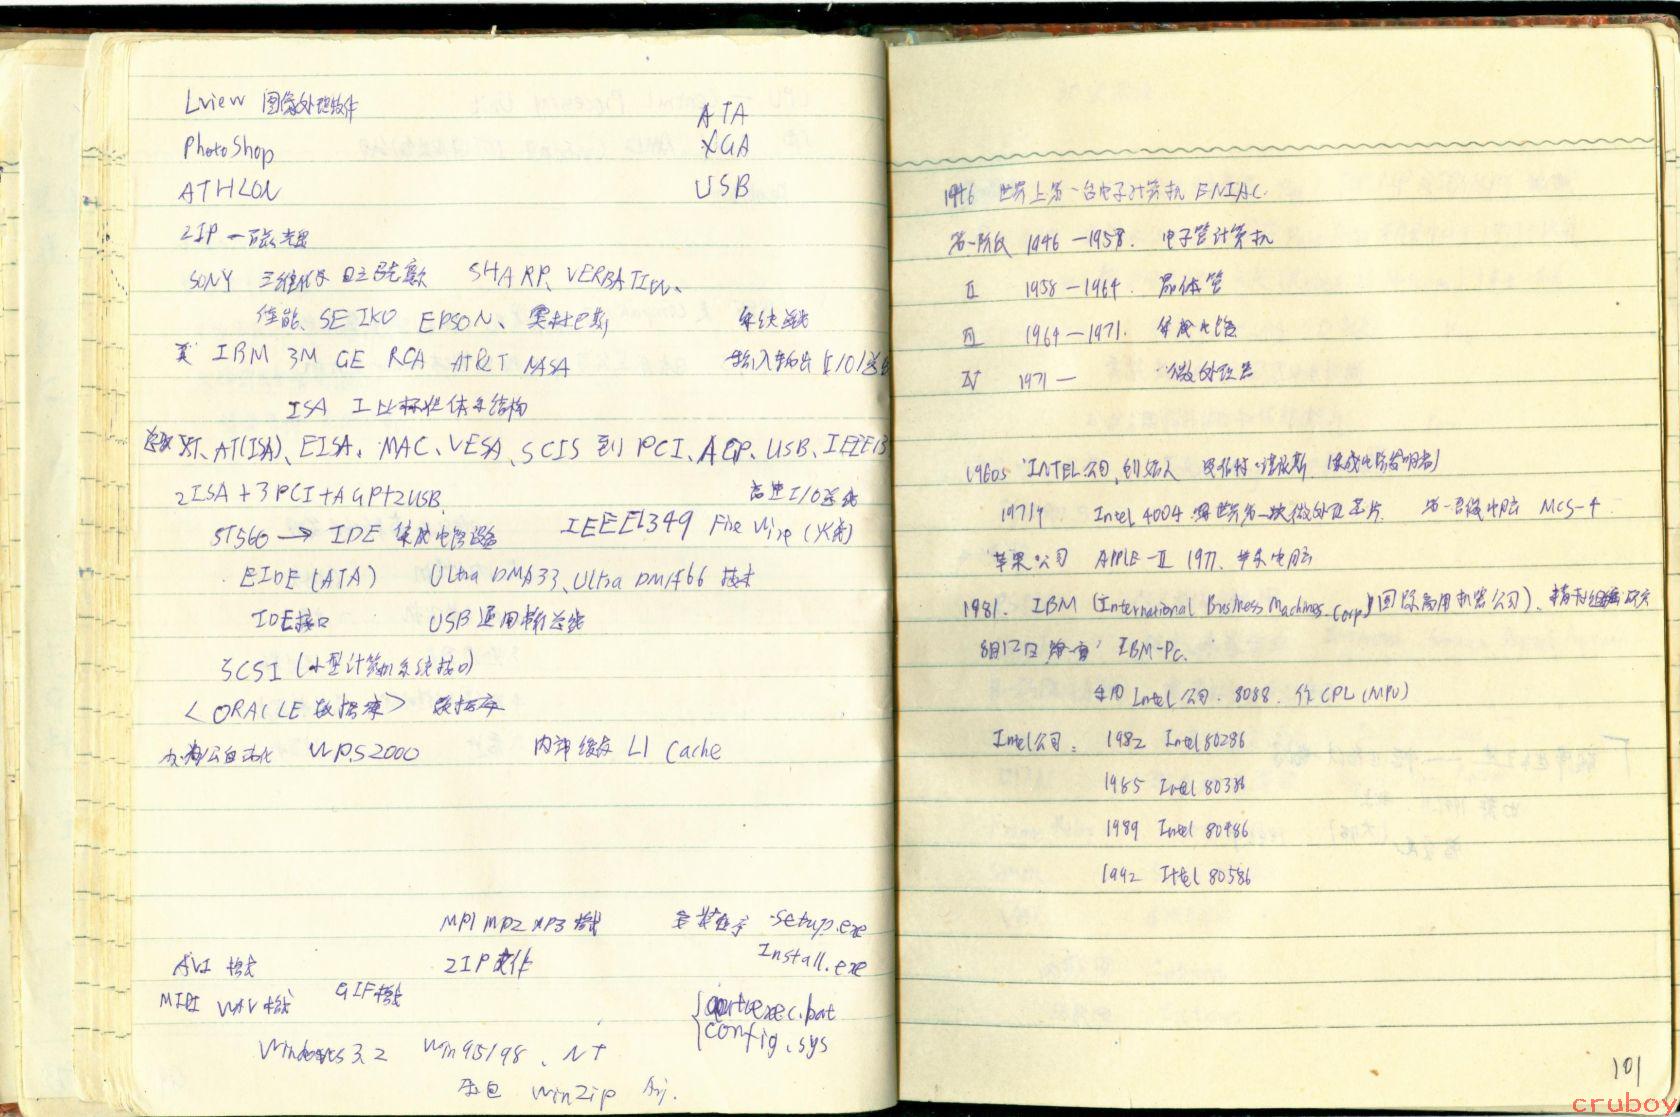 Lview 图像处理软件
PhotoShop
ATHLON
ATA
XGA
USB
ZIP 一磁光盘
SONY 三维化学 日立 SHARP、VERBATIM、
佳能、SEIKO EPSON、奥林巴斯
美 IBM 3M GE RCA AT&T NASA
系统总线
输入输出 I/O 总线
ISA 工业标准体系结构
总线 XT、AT(ISA)、EISA、MAC、VESA、SCIS 到 PCI、AGP、USB、IEEE13
2ISA+3PCI+AGP+2USB
高速I/O总线
ST560 → IDE 集成电路设备
IEEE1349 Fire Wire (火线)
EIDE (ATA) Ultra DMA33、Ultra DMA66 技术
IDE接口 USB 通用串行总线
SCSI (小型计算机系统接口)
<ORACLE 数据库> 数据库
办公自动化 WPS2000 内部缓存 L1 Cache
MP1 MP2 MP3 格式
安装程序 setup.exe
Install.exe
AVI 格式 ZIP 文件
MIDI WAV 格式 GIF格式
autoexec.bat
config.sys
Windows3.2 Win95/98、NT
压包 WinZip Arj.
1946 世界上第一台电子计算机 ENIAC.
第一阶段 1946—1958. 电子管计算机
II 1958—1964. 晶体管
III 1964—1971. 集成电路
IV 1971— 微处理器
1960s INTEL公司,创始人 罗伯特·诺依斯 (集成电路发明者)
1971年 Intel 4004 世界第一块微处理芯片. 第一台微电脑 MCS-4
苹果公司 APPLE-II 1977. 苹果电脑
1981. IBM (International Business Machines Corp)(国际商用机器公司).
8月12日 IBM-PC.
采用 Intel公司. 8088. 作CPU(MPU)
Intel公司: 1982 Intel 80286
1985 Intel 80386
1989 Intel 80486
1992 Intel 80586
101
cruboy